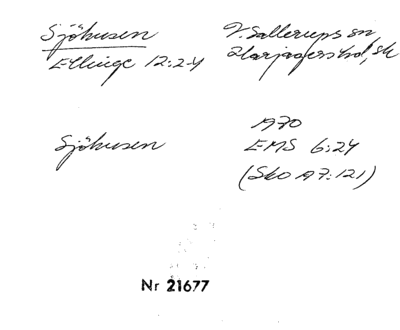 Sjöhusen
V. Sallerups sn,
Ellinge 12:2-4
Harjagers hd, Sk
1970
Sjöhusen
EMS 6:24
(Sko A7:121)
Nr 21677